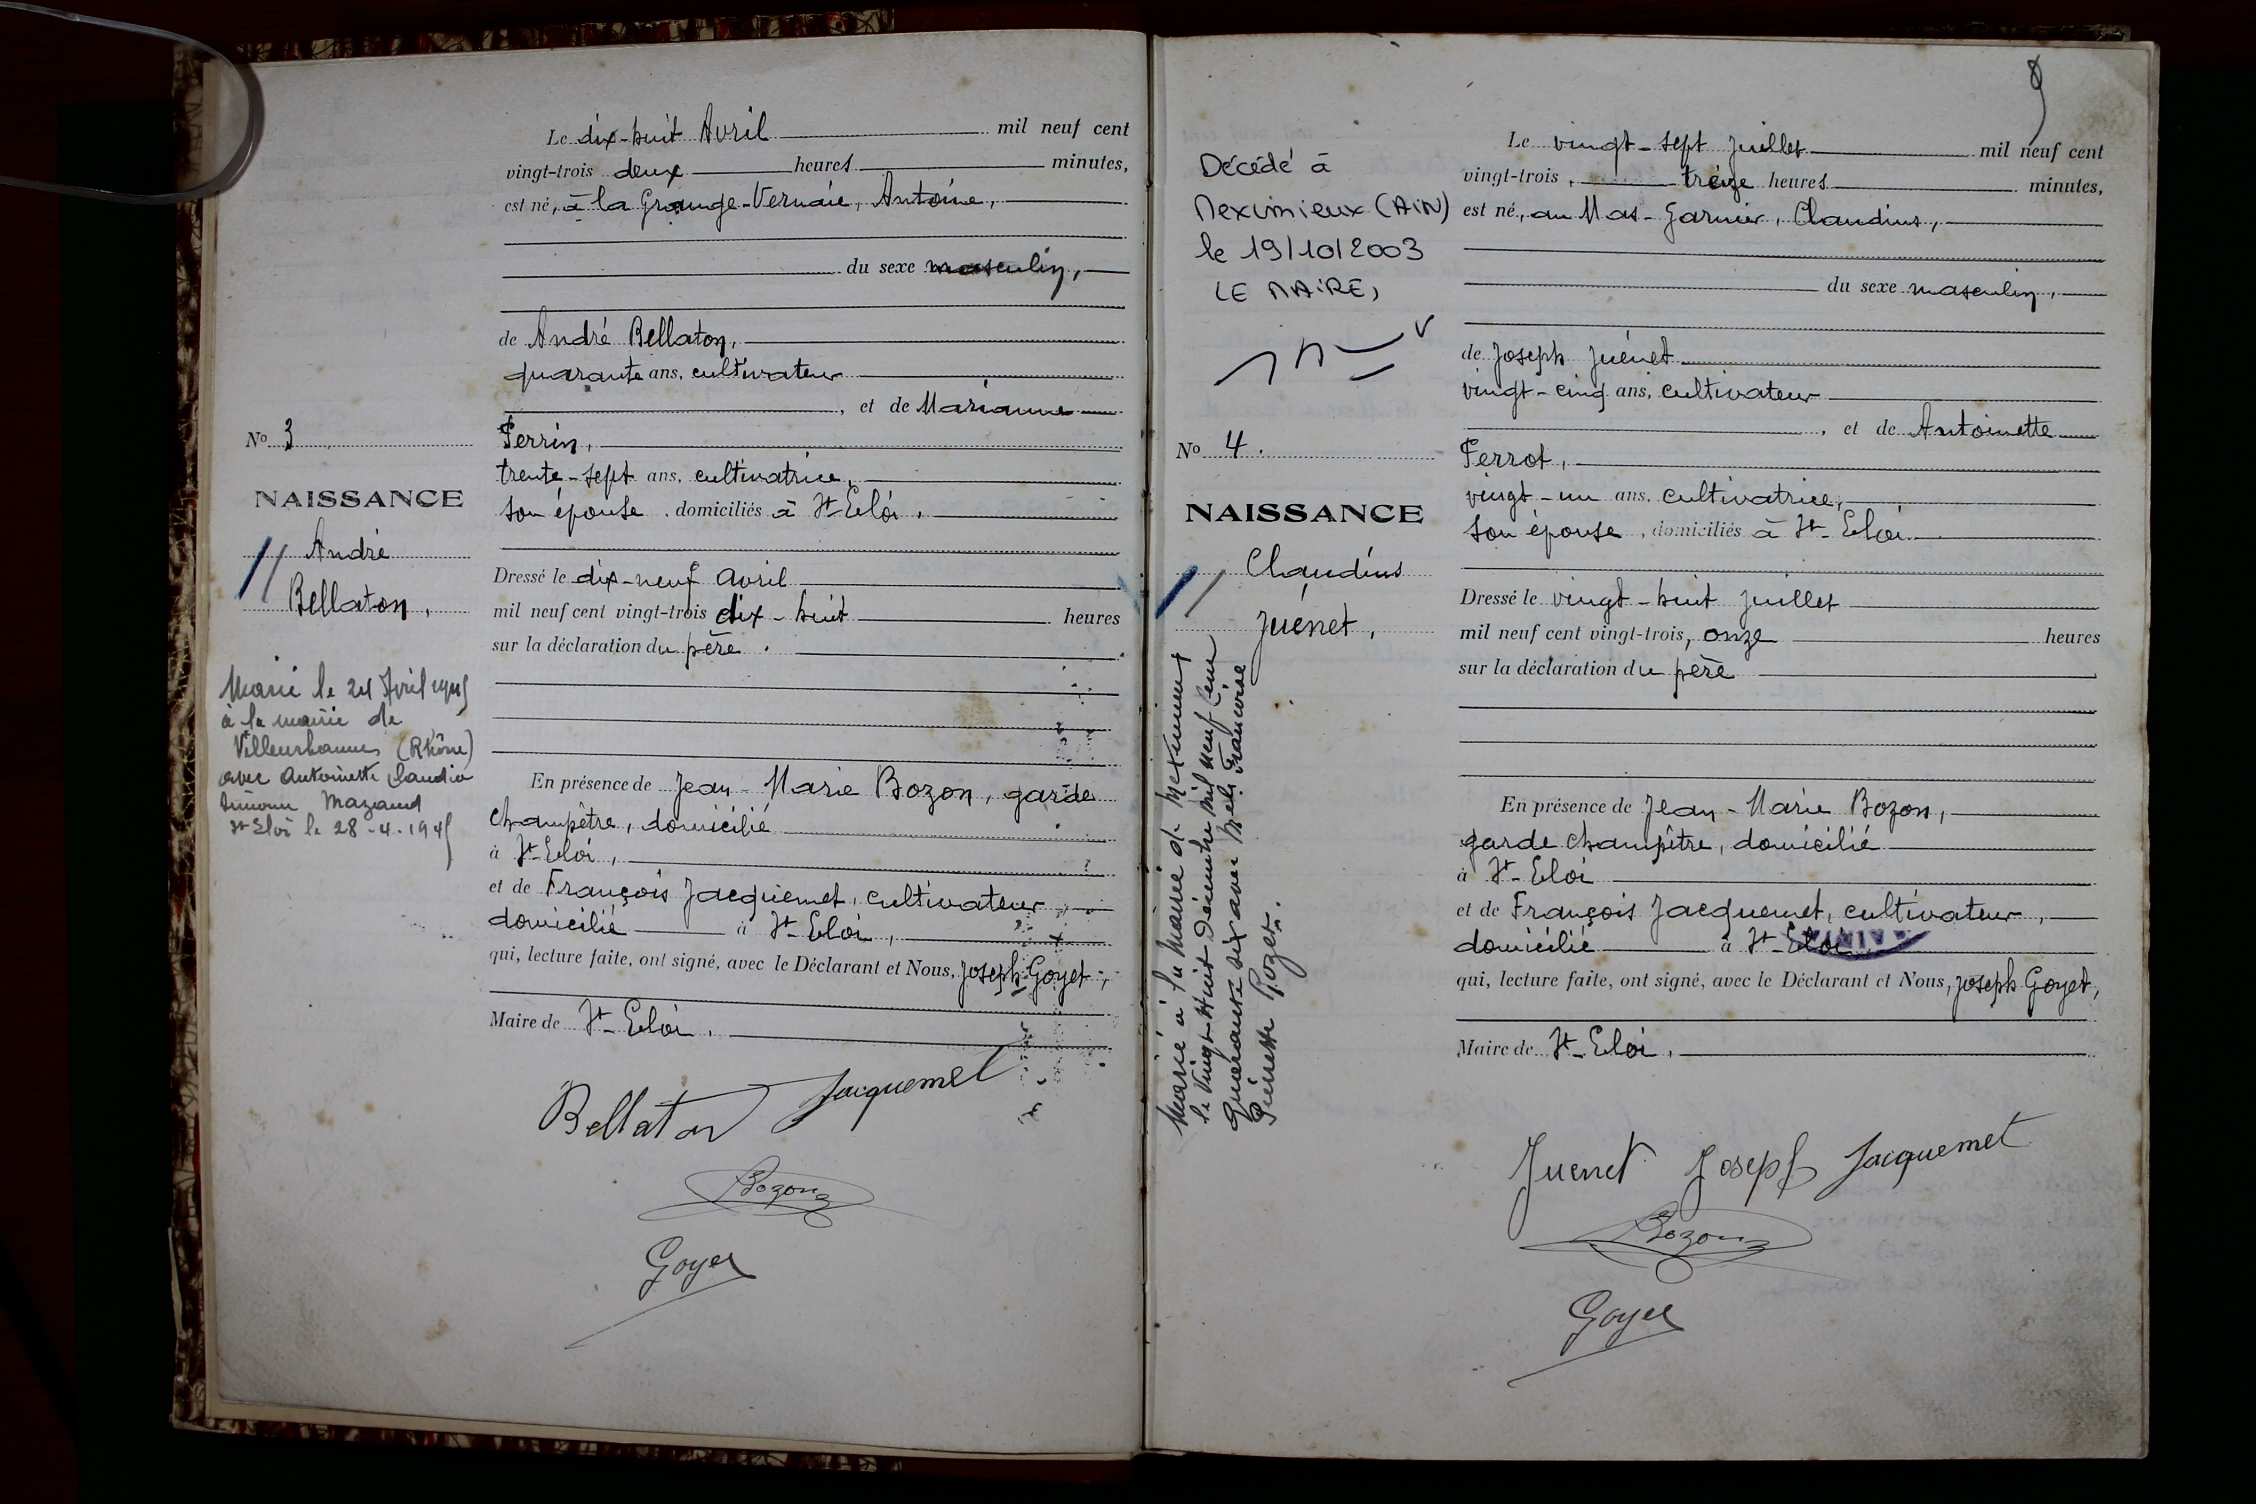 Le dix-huit Avril mil neuf cent
vingt-trois deux heures minutes,
est né, à la Grange-Vernaie, Antoine,
du sexe masculin,
de André Bellaton,
quarante ans, cultivateur
, et de Marianne
Perrin,
trente-sept ans, cultivatrice,
son épouse, domiciliés à St-Eloi,
Dressé le dix-neuf avril
mil neuf cent vingt-trois dix-huit heures
sur la déclaration du père.
En présence de Jean-Marie Bozon, garde
champêtre, domicilié
à St-Eloi,
et de François Jacquemet, cultivateur
domicilié à St-Eloi,
qui, lecture faite, ont signé, avec le Déclarant et Nous, Joseph Goyet,
Maire de St-Eloi.
Bellaton Jacquemet
Bozon
Goyet
No 3
NAISSANCE
André
Bellaton,
Marié le 24 Avril 1945
à la mairie de
Villeurbanne (Rhône)
avec Antoinette Claudia
Simone Mazaud
St Eloi le 28-4-1945
8
Décédé à
Meximieux (AiN)
le 19/10/2003
LE MAiRE,
No 4.
NAISSANCE
Claudius
Juénet,
Marié à la Mairie de Meximieux
le Vingt-Huit Décembre mil neuf Cent
quarante six avec Melle Francoise
Pierrette Pozet.
Le vingt-sept Juillet mil neuf cent
vingt-trois, treize heures minutes,
est né, au Mas-Garnier, Claudius,
du sexe masculin,
de Joseph Juénet
vingt-cinq ans, cultivateur
, et de Antoinette
Perrot,
vingt-un ans, cultivatrice,
son épouse, domiciliés à St-Eloi
Dressé le vingt-huit juillet
mil neuf cent vingt-trois, onze heures
sur la déclaration du père
En présence de Jean-Marie Bozon,
garde champêtre, domicilié
à St-Eloi
et de François Jacquemet, cultivateur,
domicilié à St-Eloi
qui, lecture faite, ont signé, avec le Déclarant et Nous, Joseph Goyet,
Maire de St-Eloi.
Juenet Joseph Jacquemet
Bozon
Goyet